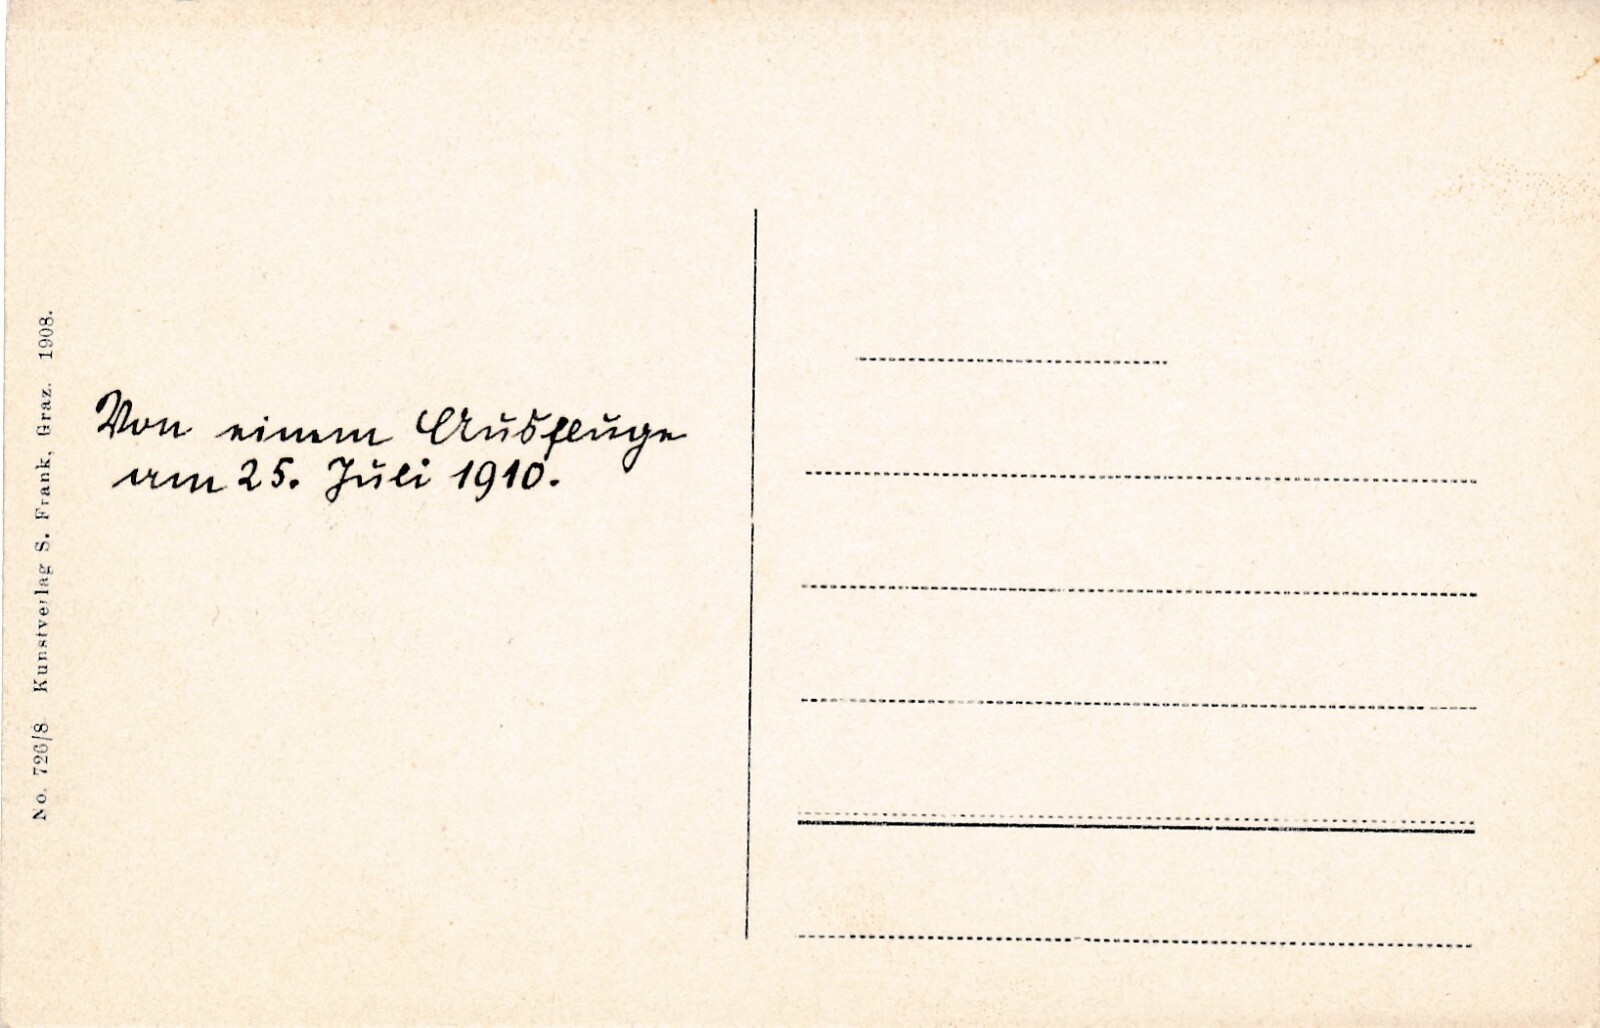 No. 726/8 Kunstverlag S. Frank, Graz. 1908.
Von einem Ausfluge
am 25. Juli 1910.